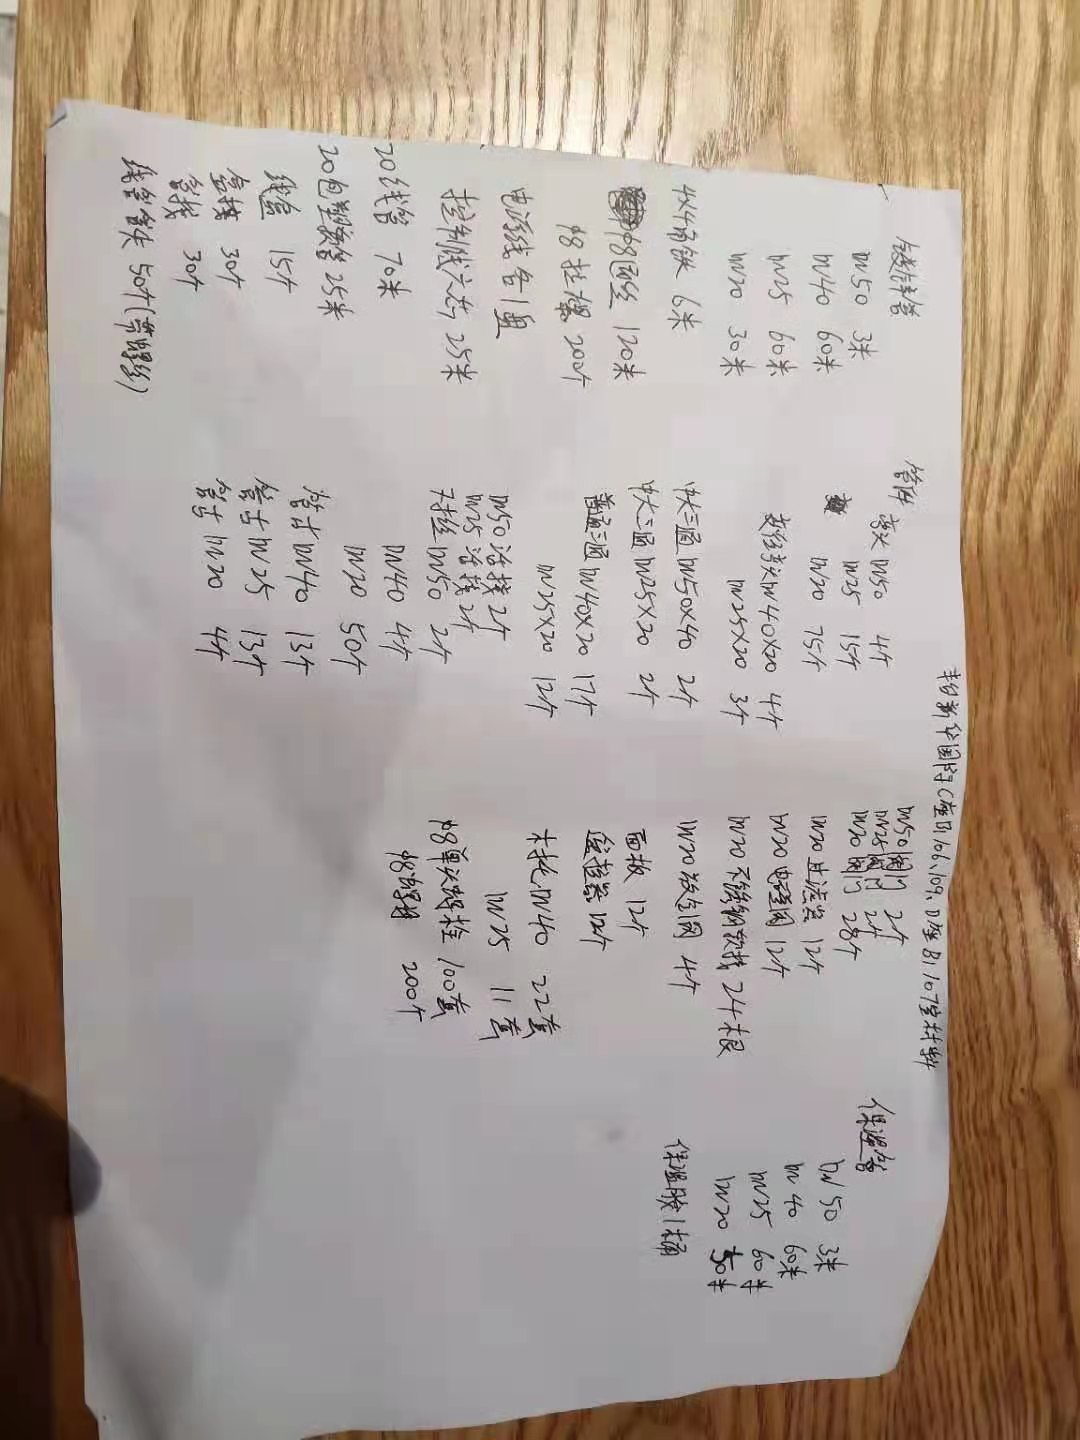 华国际(座B1106、109、D座B1107室材料
镀锌管
DN50 3米
DN40 60米
DN25 60米
DN20 30米
4X4角铁 6米
φ8通丝 120米
φ8拉爆 200个
电源线各1盘
控制线六芯 25米
20线管 70米
20包塑软管 25米
线盒 15个
盒接 30个
管接 30个
软管管头 50个
管件 弯头 DN50 4个
DN25 15个
DN20 75个
变径弯头 DN40X20 4个
DN25X20 3个
中大三通 DN50X40 2个
中大三通 DN25X20 2个
普通三通 DN40X20 17个
DN25X20 12个
DN50 活接 2个
DN25 活接 2个
对丝 DN50 2个
DN40 4个
DN20 50个
管古 DN40 13个
管古 DN25 13个
管古 DN20 4个
DN50 阀门 2个
DN25 阀门 2个
DN20 阀门 28个
DN20 过滤器 12个
DN20 电磁阀 12个
DN20 不锈钢软接 24根
DN20 放气阀 4个
面板 12个
12个
木托 DN40 22套
DN25 11套
φ8 螺栓 100套
φ8螺帽 200个
保温管
DN50 3米
DN40 60米
DN25 60米
DN20 50米
保温胶1桶